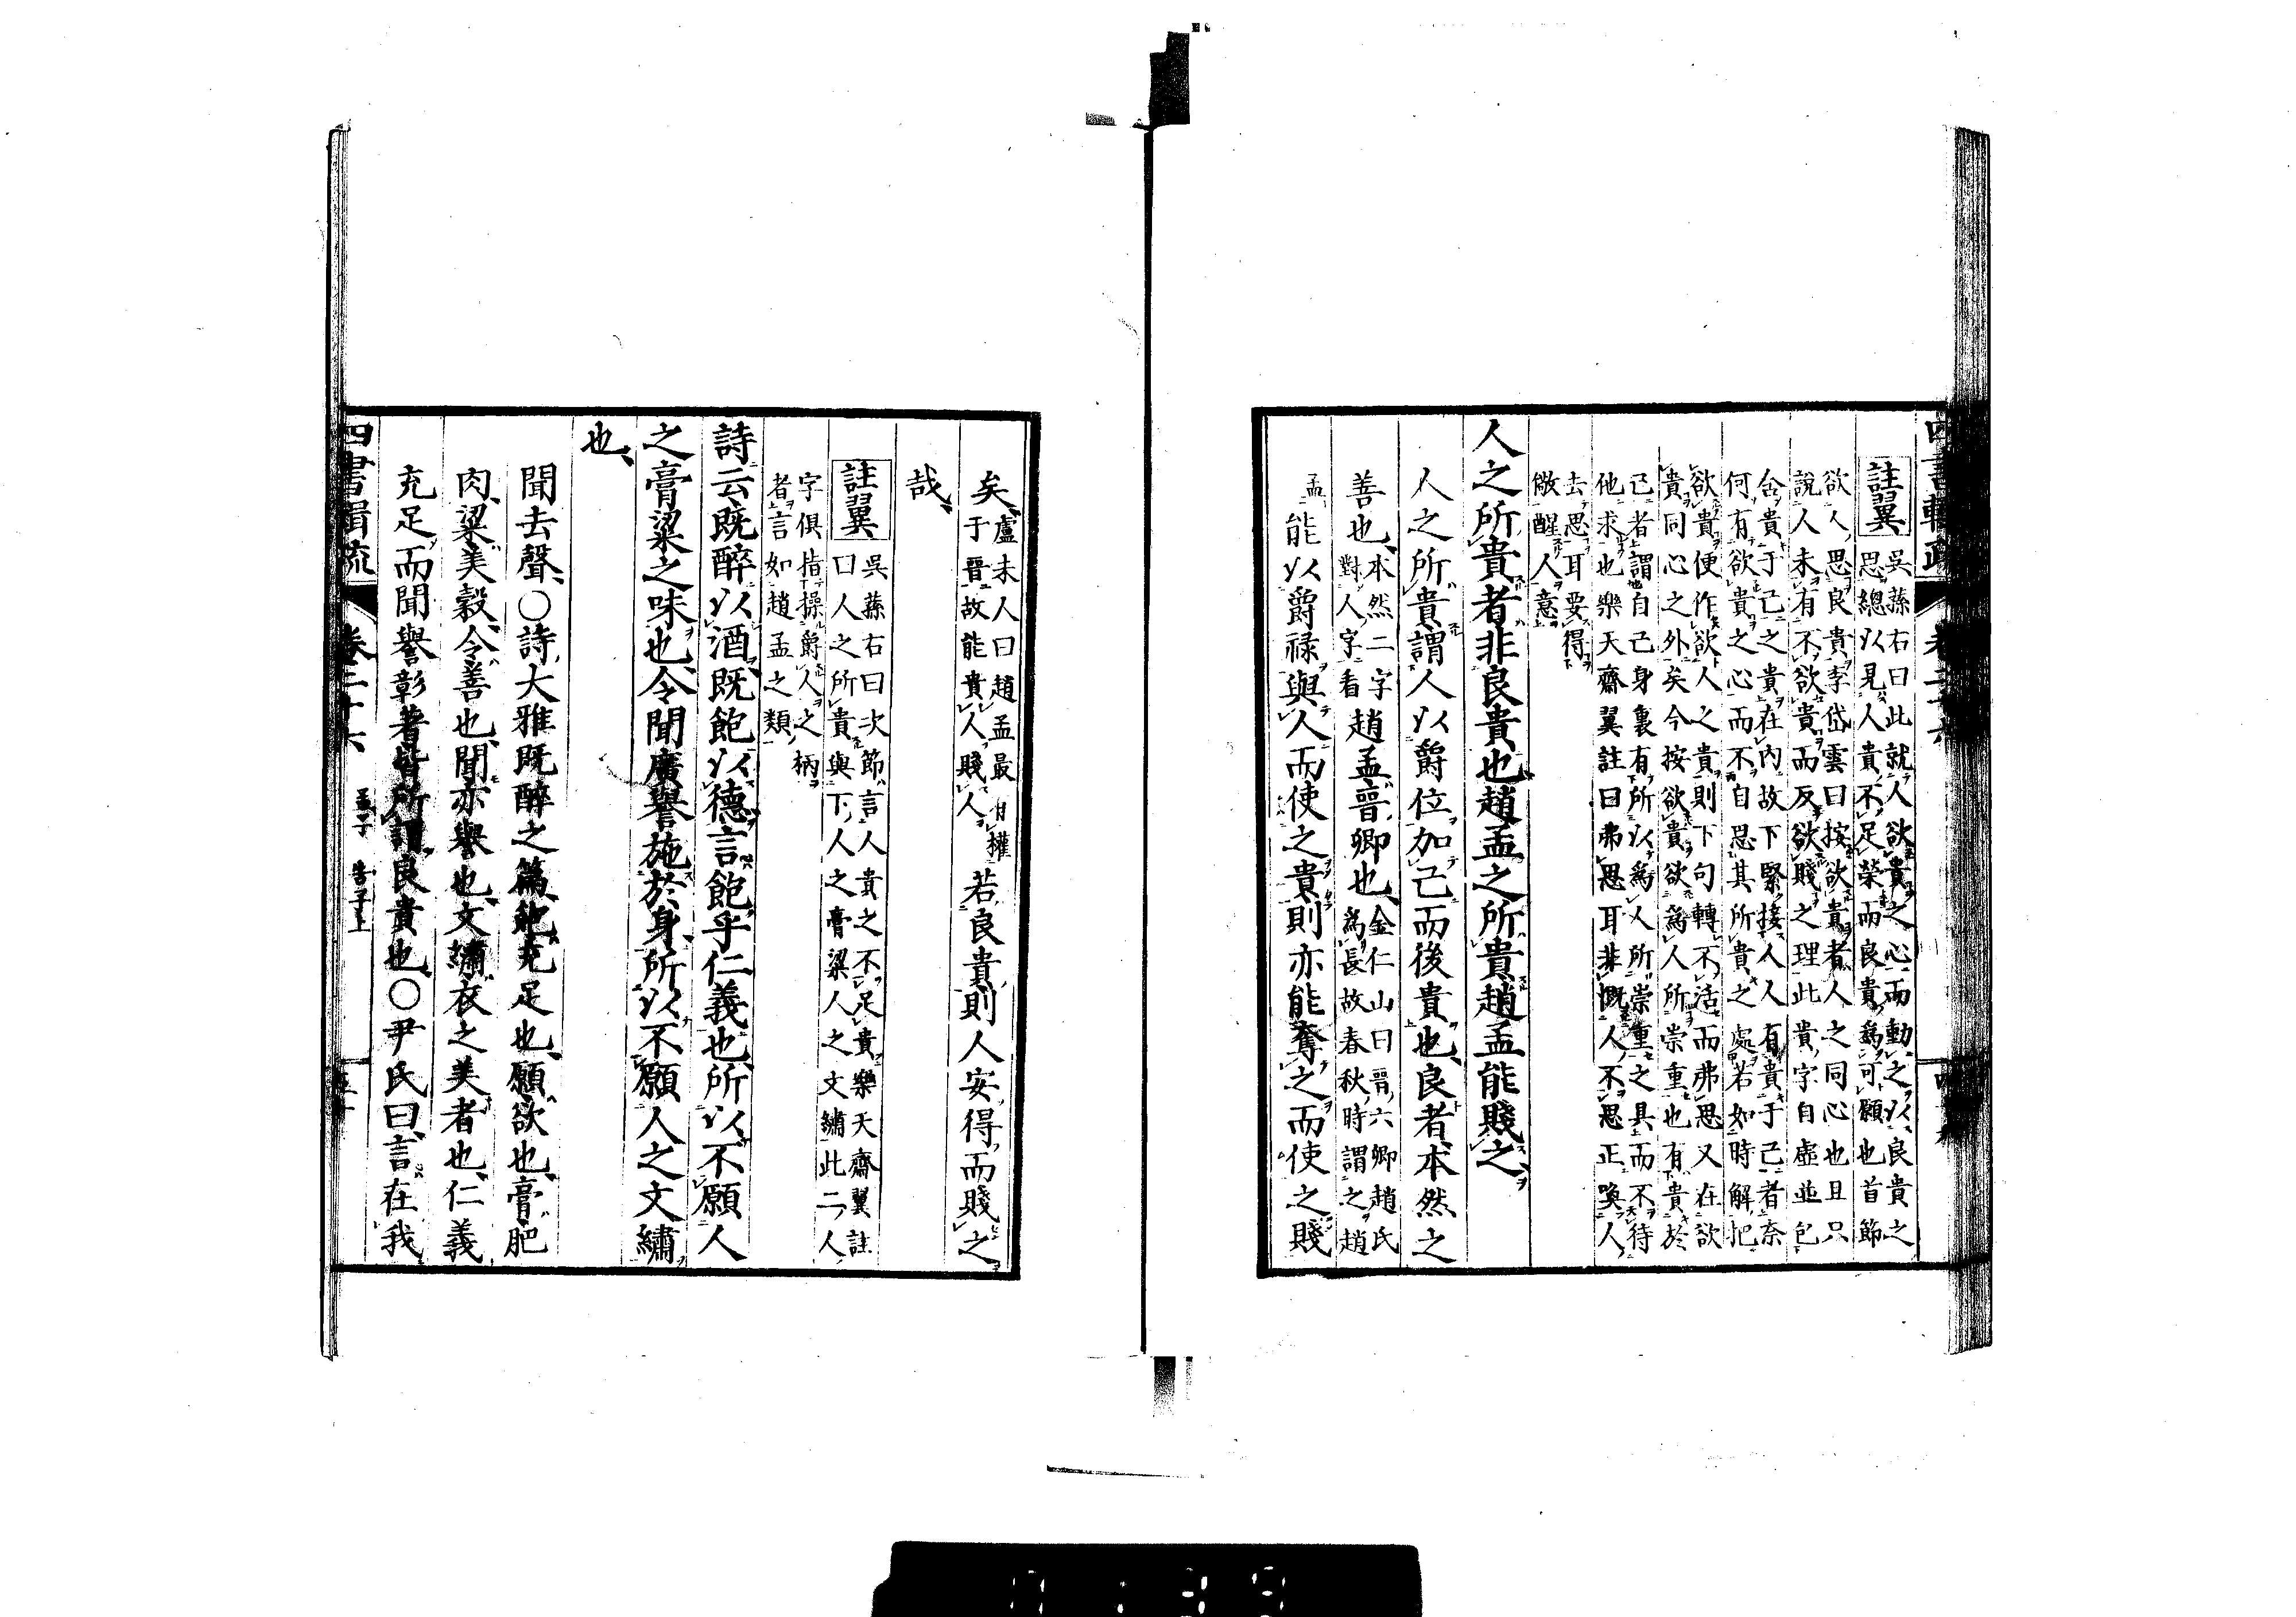 註翼
吳蓀右曰此就人欲貴之心而動之以良貴之
思總以見人貴不足榮而良貴爲可願也首節
欲人思良貴李岱雲曰按欲貴者人之同心也且只
說人未有不欲貴而反欲賤之理此貴字自虛並包
舍貴于己之貴在內故下緊接人人有貴于己者奈
何有欲貴之心而不自思其所貴之處若如時解把
欲貴便作欲人之貴則下句轉不活而弗思又在欲
貴同心之外矣今按欲貴欲爲人所崇重也有貴於
己者謂自己身裏有所以爲人所崇重之具而不待
他求也樂天齋翼註曰弗思耳非慨人不思正喚人
去思耳要得
儆醒人意
人之所貴者非良貴也趙孟之所貴趙孟能賤之
人之所貴謂人以爵位加己而後貴也良者本然之
善也
本然二字
對人字看
趙孟晉卿也
金仁山曰晉六卿趙氏
爲長故春秋時謂之趙
孟
能以爵祿與人而使之貴則亦能奪之而使之賤
矣
盧未人曰趙孟最有權
于晉故能貴人賤人
若良貴則人安得而賤之
哉
註翼
吳蓀右曰次節言人貴之不足貴樂天齋翼註
曰人之所貴與下人之膏粱人之文繡此二人
字俱指操爵人之柄
者言如趙孟之類
詩云既醉以酒既飽以德言飽乎仁義也所以不願人
之膏粱之味也令聞廣譽施於身所以不願人之文繡
也
聞去聲○詩大雅既醉之篇飽充足也願欲也膏肥
肉粱美穀令善也聞亦譽也文繡衣之美者也仁義
充足而聞譽彰著皆所謂良貴也○尹氏曰言在我
四書輯疏
卷二十六
孟子 告子上